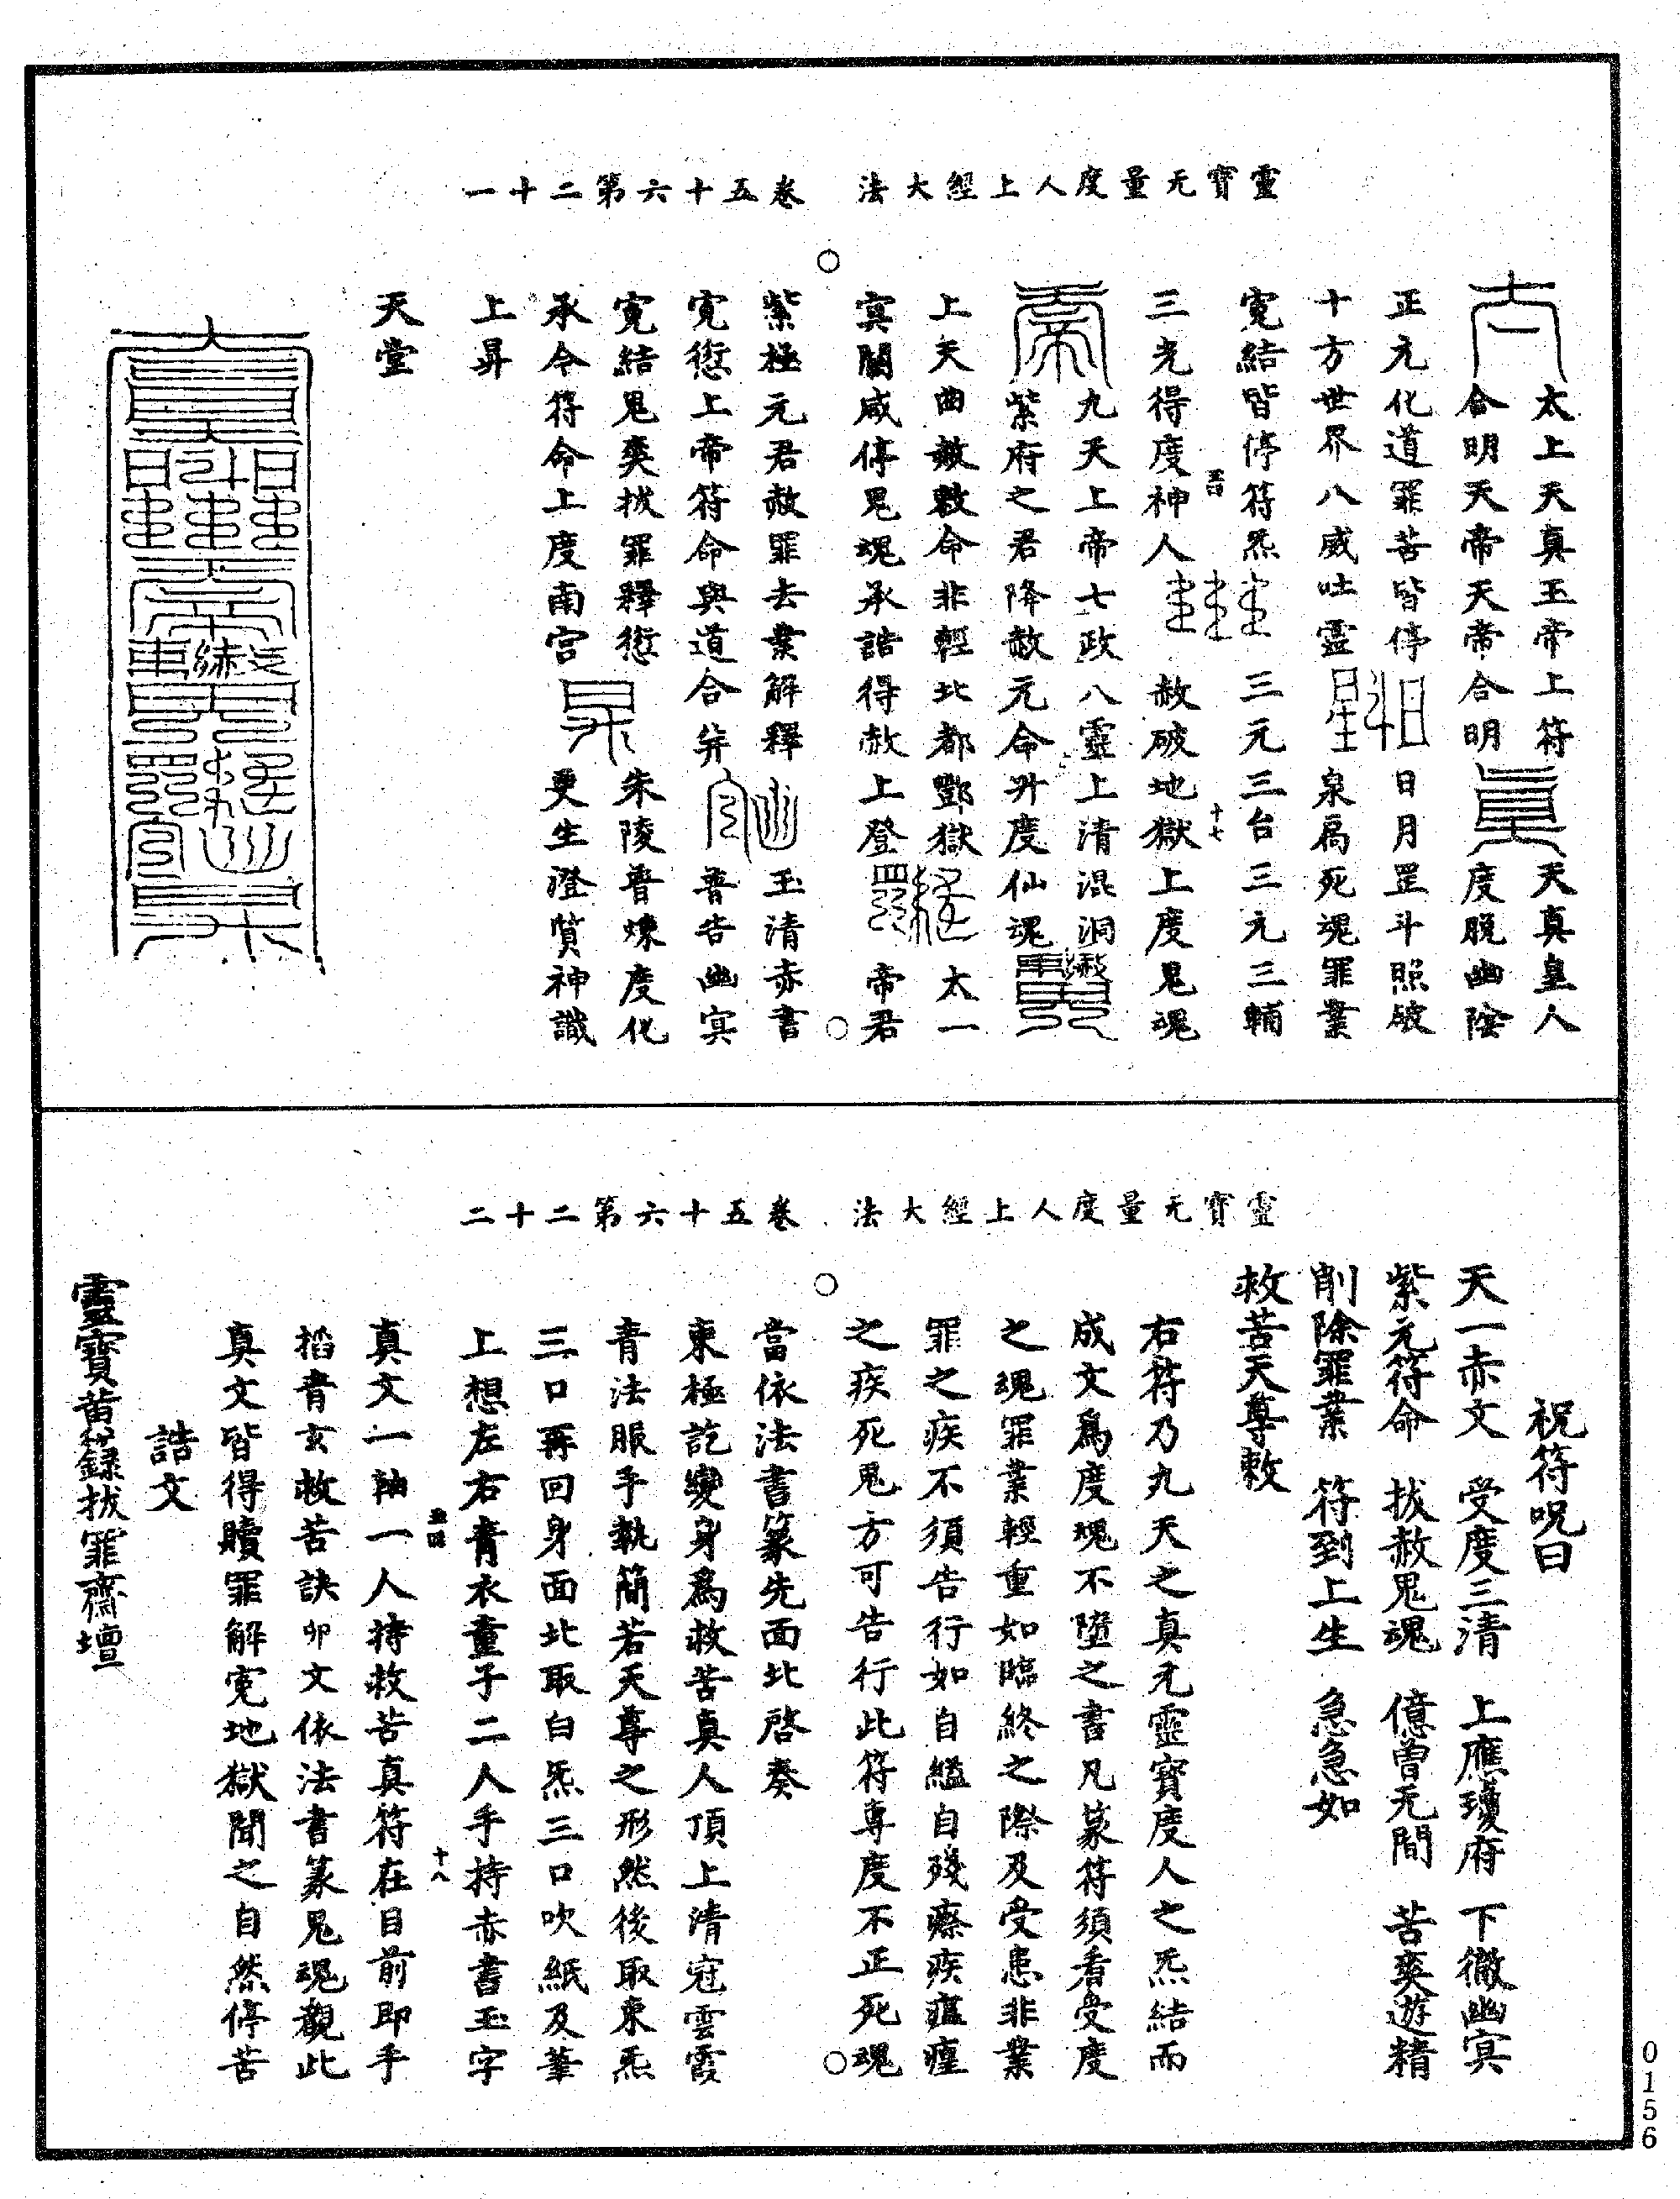 靈寶无量度人上經大法　卷五十六第二十一
太上天真玉帝上符　天真皇人
合明天帝天帝合明　度脫幽陰
正元化道罪苦皆停　日月罡斗照破
十方世界八威吐靈　泉扃死魂罪業
寃結皆停符炁　三元三台三元三輔
十七
三光得度神人　赦破地獄上度鬼魂
九天上帝七政八靈上清混洞
紫府之君降赦元命升度仙魂
上天曲赦敕命非輕北都酆獄　太一
冥關咸停鬼魂承誥得赦上登　帝君
紫極元君赦罪去業解釋　玉清赤書
寃愆上帝符命與道合并　普告幽冥
寃結鬼爽拔罪釋愆　朱陵普煉度化
承令符命上度南宮　更生澄質神識
上昇
天堂
靈寶无量度人上經大法　卷五十六第二十二
祝符呪曰
天一赤文　受度三清　上應瓊府　下徹幽冥
紫元符命　拔赦鬼魂　億曾无間　苦爽遊精
削除罪業　符到上生　急急如
救苦天尊敕
右符乃九天之真元靈寶度人之炁結而
成文爲度魂不墮之書凡篆符須看受度
之魂罪業輕重如臨終之際及受患非業
罪之疾不須告行如自縊自殘瘵疾瘟瘴
之疾死鬼方可告行此符專度不正死魂
當依法書篆先面北啓奏
東極訖變身爲救苦真人頂上清冠雲霞
青法服手執簡若天尊之形然後取東炁
三口再回身面北取白炁三口吹紙及筆
上想左右青衣童子二人手持赤書玉字
十八
真文一軸一人持救苦真符在目前即手
掐青玄救苦訣卯文依法書篆鬼魂觀此
真文皆得贖罪解寃地獄聞之自然停苦
誥文
靈寶黃籙拔罪齋壇
0156